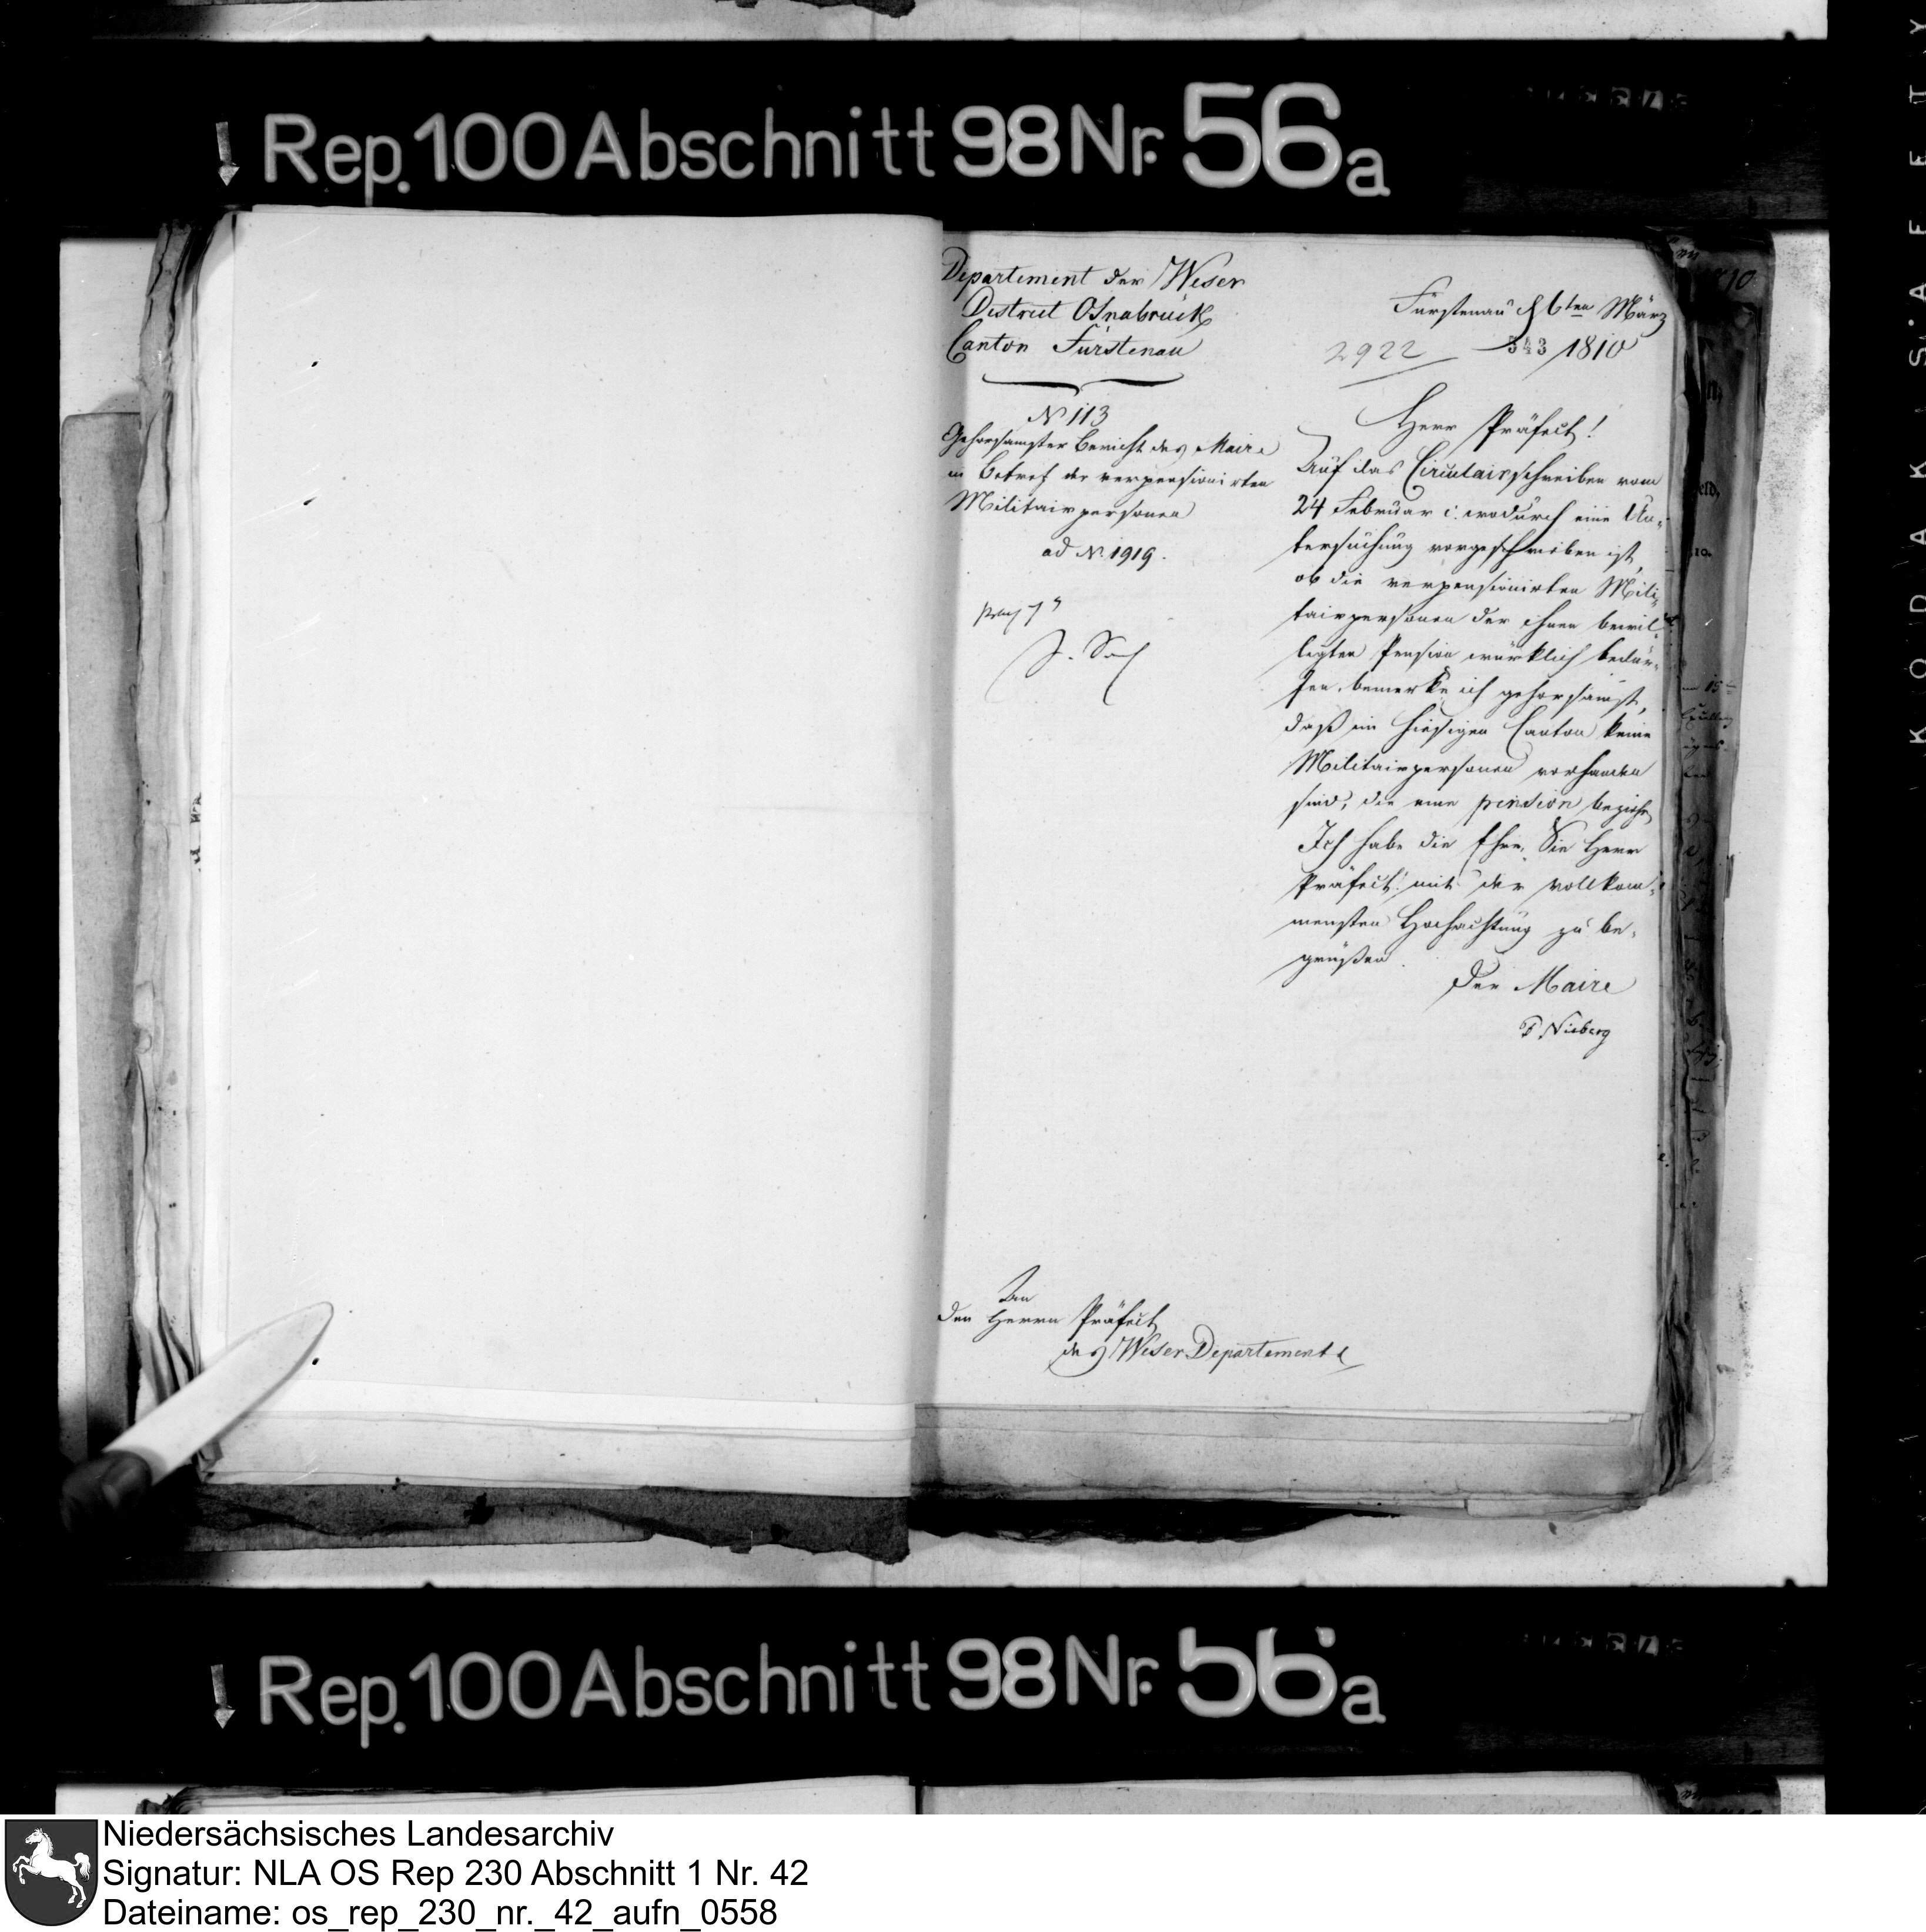 Rep. 100 Abschnitt 98 Nr. 56a
Departement der Weser
District Osnabrück
Canton Fürstenau
Fürstenau d 6ten März
2922 343 1810
N 113
Gehorsamster Bericht des Maire
in Betref der verpensionirten
Militairpersonen
ad N. 1919.
Herr Präfect!
Auf das Circulairschreiben vom
24 Februar c. wodurch eine Un-
tersuchung vorgeschrieben ist,
ob die verpensionirten Mili-
tairpersonen der ihnen bewil-
ligten Pension würklich bedür-
fen, bemerke ich gehorsamst,
daß im hiesigen Canton keine
Militairpersonen vorhanden
sind, die eine pension beziehen
Ich habe die Ehre, Sie Herr
Präfect! mit der vollkom-
mensten Hochachtung zu be-
grüßen.
Der Maire
Nieberg
An
den Herrn Präfect
des Weser Departements
Rep. 100 Abschnitt 98 Nr. 56a
KODAK SAFETY
Niedersächsisches Landesarchiv
Signatur: NLA OS Rep 230 Abschnitt 1 Nr. 42
Dateiname: os_rep_230_nr._42_aufn_0558